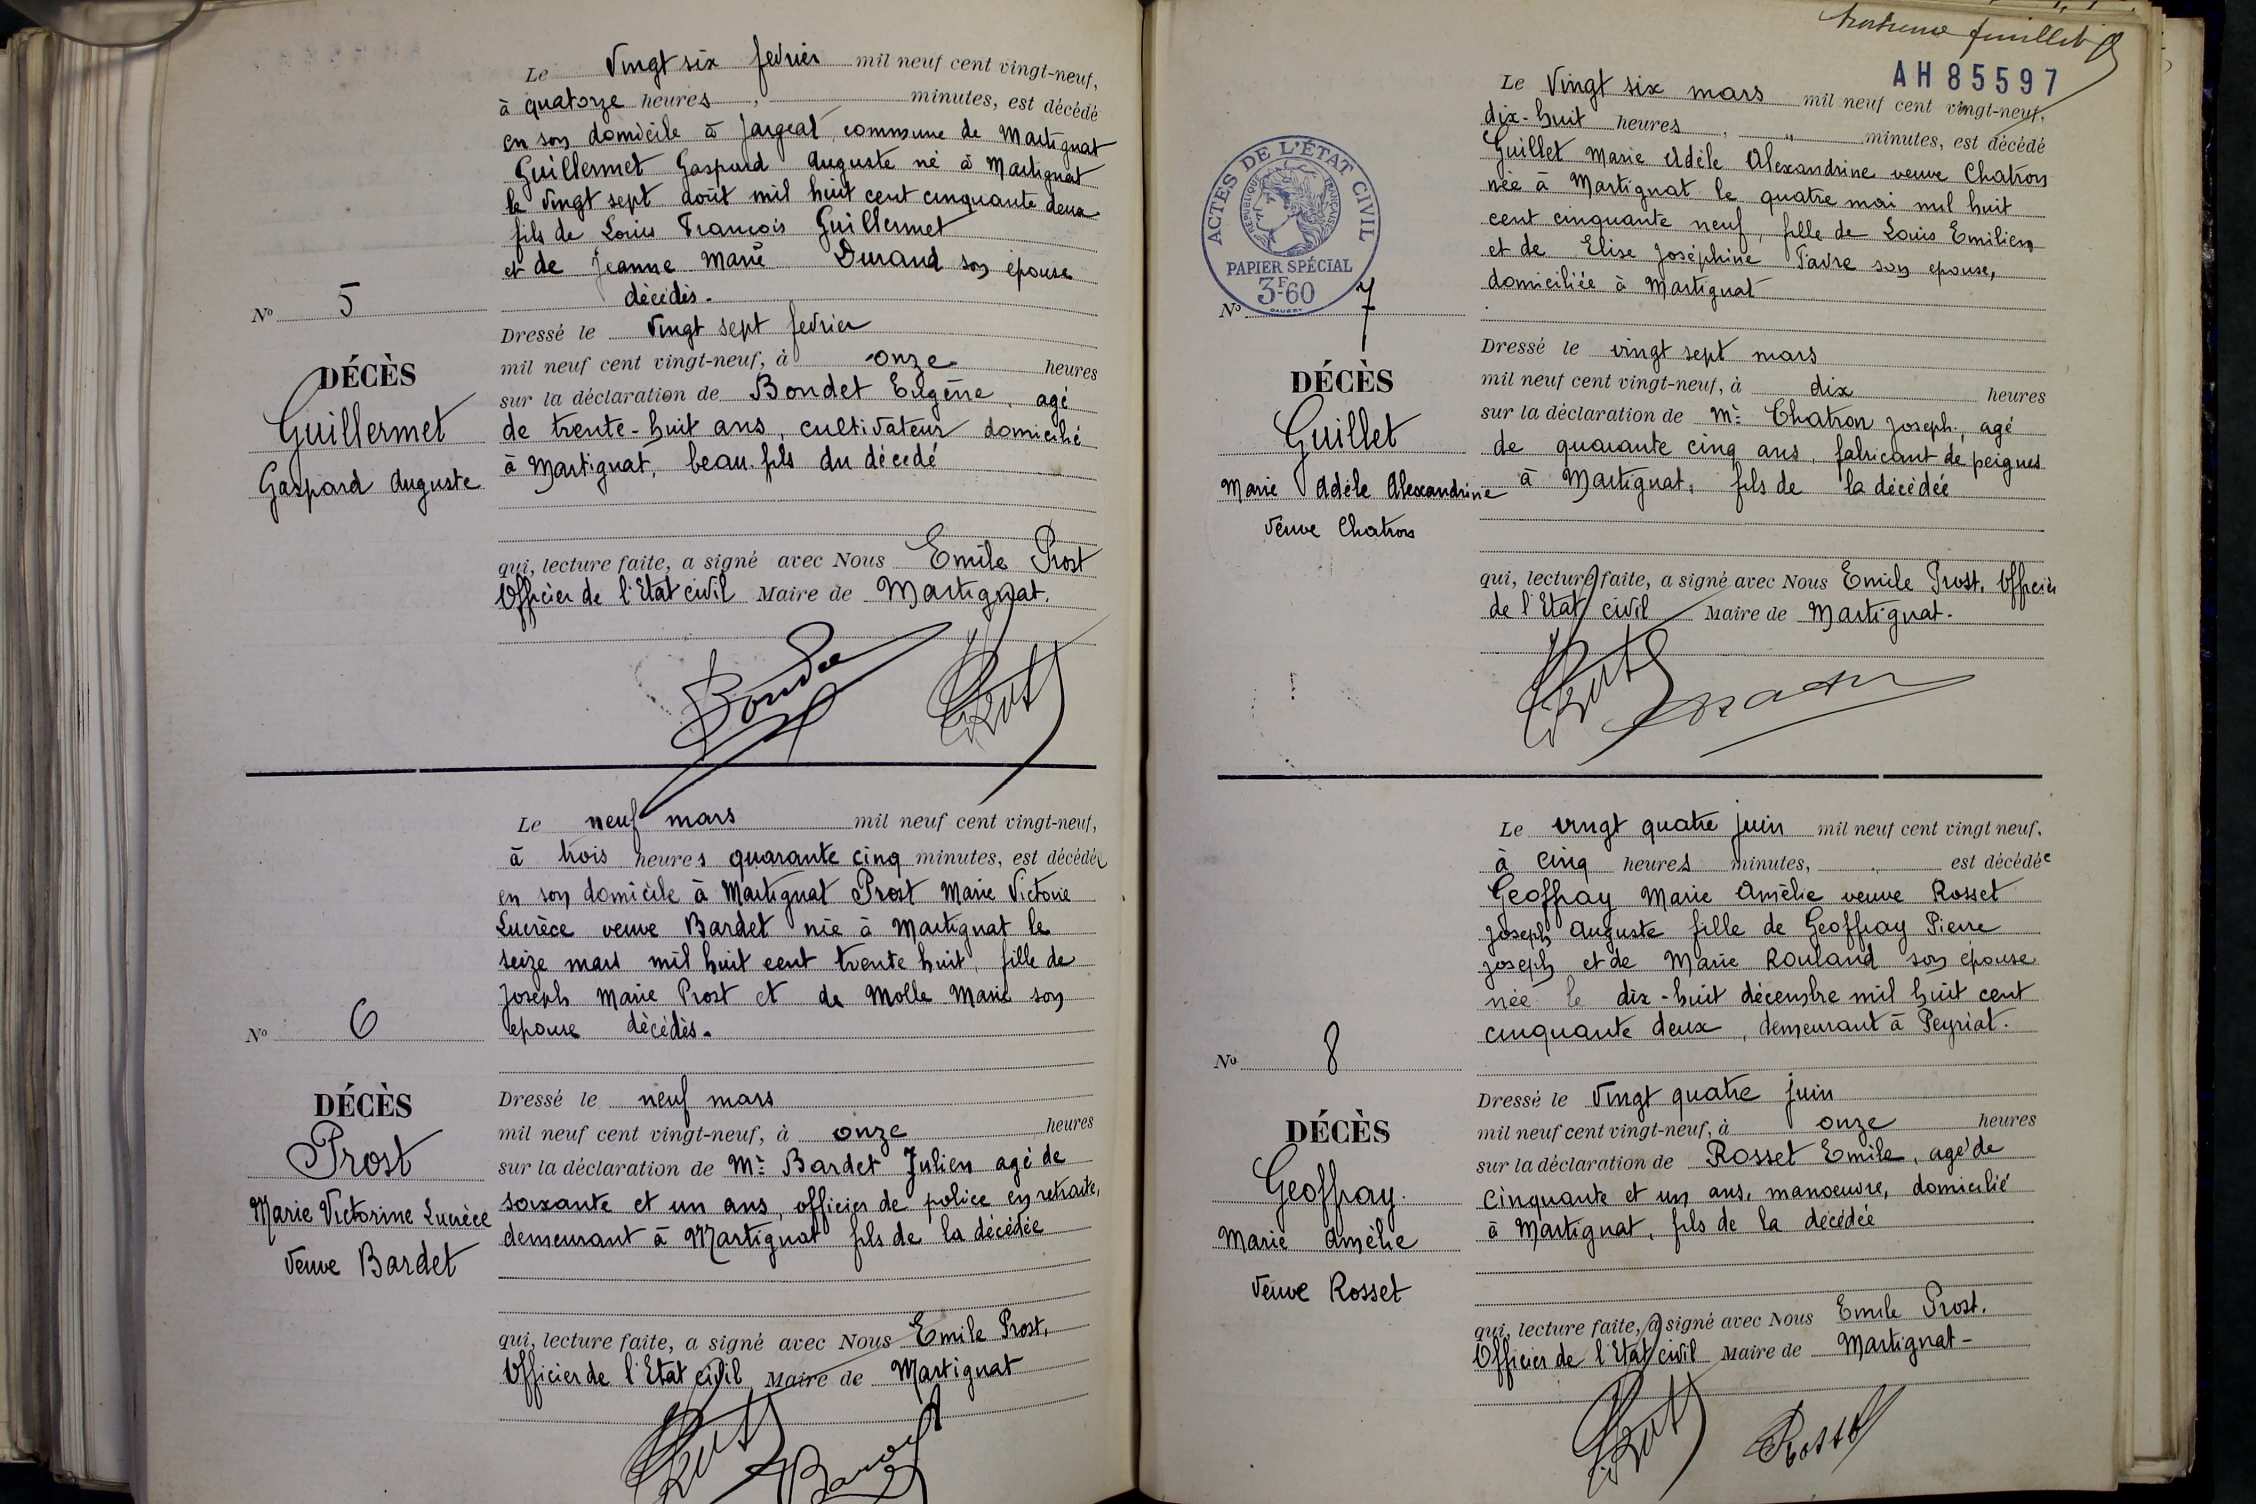 Le Vingt six fevrier mil neuf cent vingt-neuf,
à quatorze heures, minutes, est décédé
en son domicile à Jargeat, commune de Martignat
Guillermet Gaspard Auguste né à Martignat
le Vingt sept août mil huit cent cinquante deux
fils de Louis François Guillermet
et de Jeanne Marie Durand son épouse
décédés.
Nº 5
Dressé le Vingt sept fevrier
mil neuf cent vingt-neuf, à onze heures
sur la déclaration de Bondet Eugène, agé
de trente-huit ans, cultivateur domicilié
à Martignat, beau-fils du décedé
DÉCÈS
Guillermet
Gaspard Auguste
qui, lecture faite, a signé avec Nous Emile Prost
Officier de l'Etat civil Maire de Martignat.
Le neuf mars mil neuf cent vingt-neuf,
à trois heures quarante cinq minutes, est décédée
en son domicile à Martignat Prost Marie Victorie
Lucrèce veuve Bardet née à Martignat le
seize mars mil huit cent trente huit, fille de
Joseph Marie Prost et de Molle Marie son
epouse décédés.
Nº 6
Dressé le neuf mars
mil neuf cent vingt-neuf, à onze heures
sur la déclaration de Mr Bardet Julien agé de
soixante et un ans, officier de police en retraite,
demeurant à Martignat fils de la décédée
DÉCÈS
Prost
Marie Victorine Lucrèce
Veuve Bardet
qui, lecture faite, a signé avec Nous Emile Prost,
Officier de l'Etat civil Maire de Martignat
feuillet
AH 85597
Le Vingt six mars mil neuf cent vingt-neuf,
dix-huit heures, " minutes, est décédé
Guillet Marie Adèle Alexandrine veuve Chatron
née à Martignat le quatre mai mil huit
cent cinquante neuf, fille de Louis Emilien
et de Elise Joséphine Favre son epouse,
domiciliée à Martignat
ACTES DE L'ÉTAT CIVIL
RÉPUBLIQUE FRANÇAISE
PAPIER SPÉCIAL
3F60
Nº 7
Dressé le vingt sept mars
mil neuf cent vingt-neuf, à dix heures
sur la déclaration de Mr Chatron Joseph, agé
de quarante cinq ans, fabricant de peignes
à Martignat, fils de la décédée
DÉCÈS
Guillet
Marie Adèle Alexandrine
Veuve Chatron
qui, lecture faite, a signé avec Nous Emile Prost. Officier
de l'Etat civil Maire de Martignat.
Le vingt quatre juin mil neuf cent vingt neuf,
à cinq heures minutes, " est décédée
Geoffray Marie Amélie veuve Rosset
Joseph Auguste fille de Geoffray Pierre
Joseph et de Marie Rouland son épouse
née le dix-huit décembre mil huit cent
cinquante deux, demeurant à Peyriat.
Nº 8
Dressé le Vingt quatre juin
mil neuf cent vingt-neuf, à onze heures
sur la déclaration de Rosset Emile, agé de
cinquante et un ans, manoeuvre, domicilié
à Martignat, fils de la décédée
DÉCÈS
Geoffray.
Marie Amélie
Veuve Rosset
qui, lecture faite, a signé avec Nous Emile Prost.
Officier de l'Etat civil Maire de Martignat-
Rosset